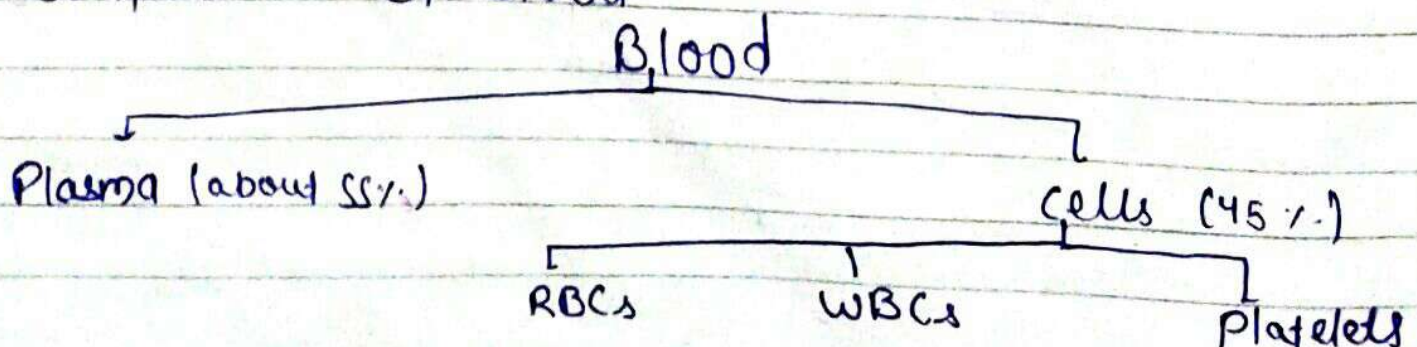 Blood
Plasma (about 55%)
Cells (45%)
RBCs WBCs Platelets